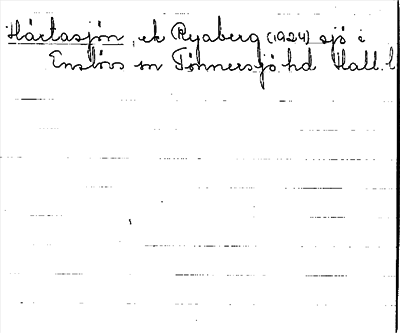 Hårlasjön, ek Ryaberg (1924) sjö i
Enslövs sn Tönnersjö hd Hall. l